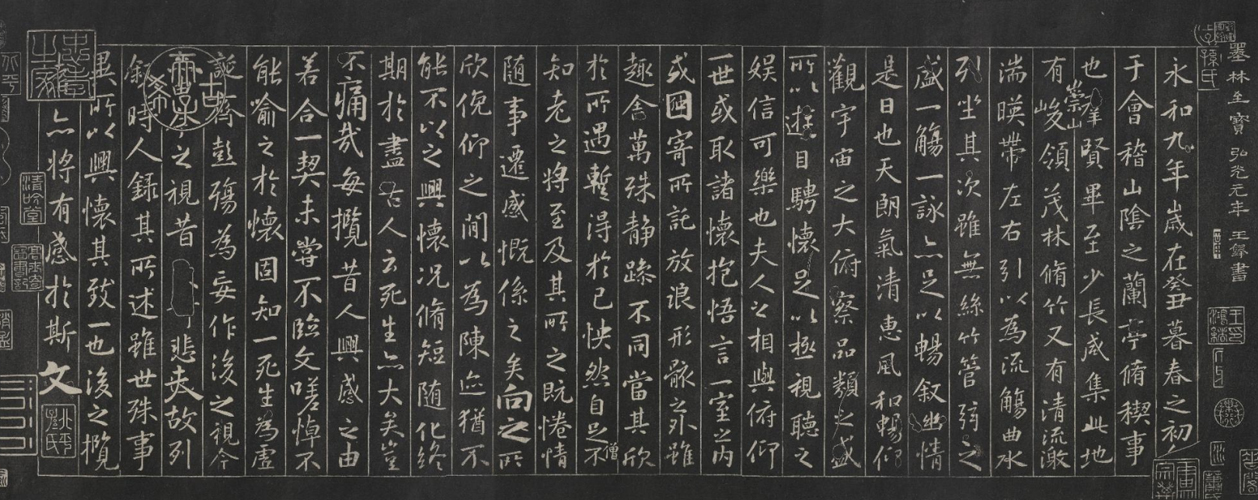 墨林至寶 弘光元年 王鐸書
永和九年歲在癸丑暮春之初
于會稽山陰之蘭亭脩稧事
也群賢畢至少長咸集此地
有崇山峻領茂林脩竹又有清流激
湍暎帶左右引以為流觴曲水
列坐其次雖無絲竹管弦之
盛一觴一詠亦足以暢叙幽情
是日也天朗氣清惠風和暢仰
觀宇宙之大俯察品類之盛
所以遊目騁懷足以極視聽之
娛信可樂也夫人之相與俯仰
一世或取諸懷抱悟言一室之內
或因寄所託放浪形骸之外雖
趣舍萬殊静躁不同當其欣
於所遇暫得於己怏然自足不
僧
知老之將至及其所之既惓情
随事遷感慨係之矣向之所
欣俛仰之閒以為陳迹猶不
能不以之興懷况脩短随化終
期於盡古人云死生亦大矣豈
不痛哉每攬昔人興感之由
若合一契未嘗不臨文嗟悼不
能喻之於懷固知一死生為虛
誕齊彭殤為妄作後之視今
亦由今之視昔悲夫故列
叙時人錄其所述雖世殊事
異所以興懷其致一也後之攬
亦將有感於斯文
忠孝之家